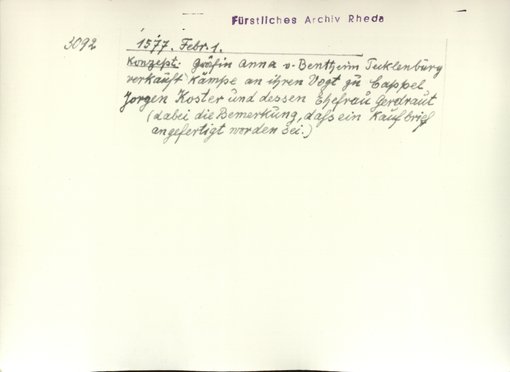 Fürstliches Archiv Rheda
3092 1577. Febr. 1.
Konzept: Gräfin Anna v. Bentheim Tecklenburg
verkauft Kämpe an ihren Vogt zu Cappel
Jorgen Koster und dessen Ehefrau Gerdraut
(dabei die Bemerkung, daſs ein Kaufbrief
angefertigt worden sei.)